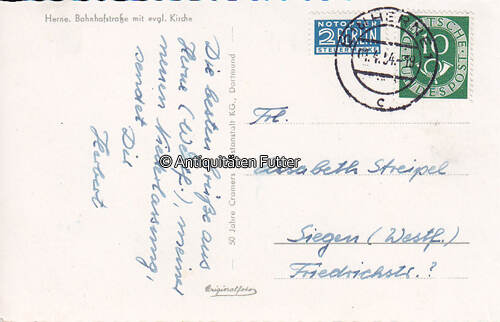 Herne. Bahnhofstraße mit evgl. Kirche
Die besten Grüße aus
Herne (Westf.), meiner
neuen Niederlassung,
sendet Dir
Herbert
50 Jahre Cramers Kunstanstalt KG., Dortmund
Originalfoto
NOTOPFER
2 BERLIN
STEUERMARKE
DEUTSCHE
BUNDESPOST
HERNE
.54.
c
Frl.
Elisabeth Streipel
Siegen (Westf.)
Friedrichstr. ?
© Antiquitäten Futter